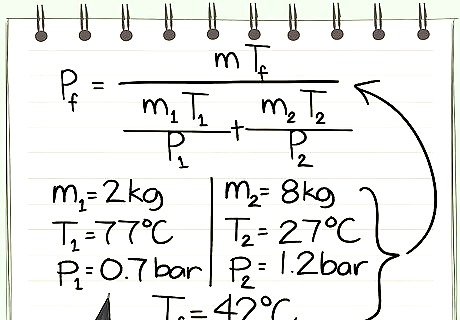 P_f = m T_f / (m₁T₁/P₁ + m₂T₂/P₂)
m₁=2kg
T₁=77°C
P₁=0.7bar
m₂=8kg
T₂=27°C
P₂=1.2bar
T_f=42°C